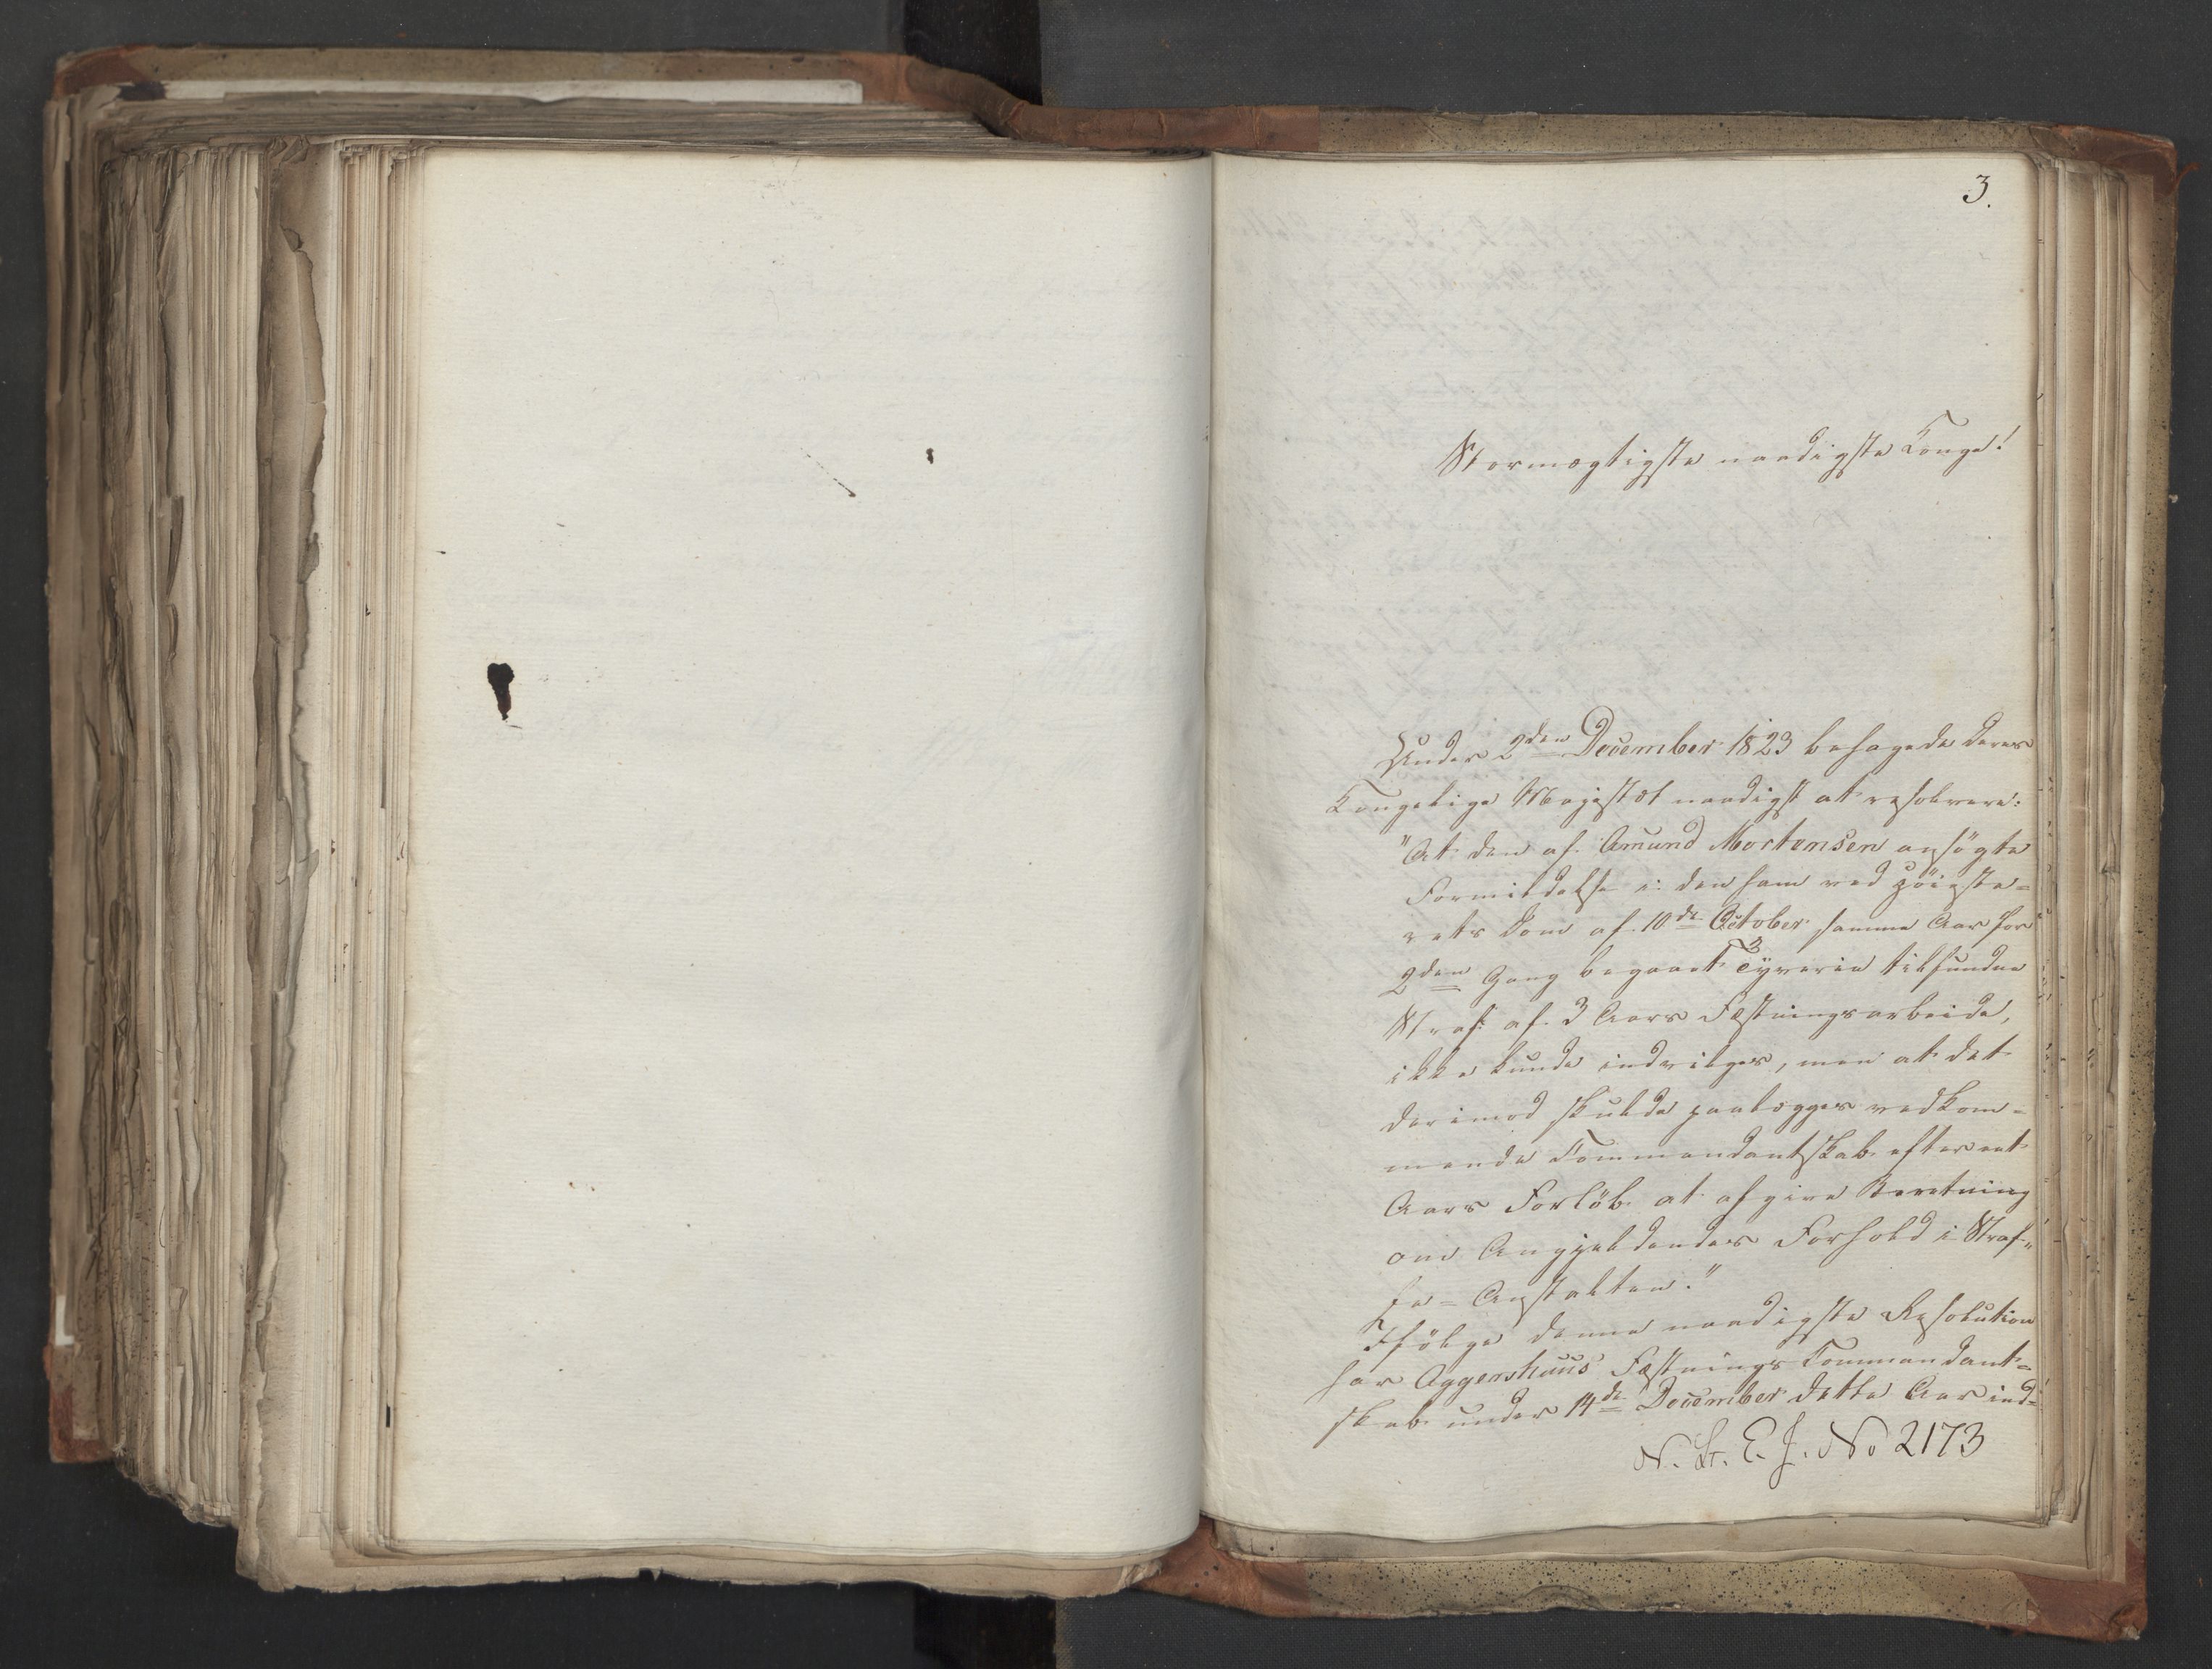 3.
Stormægtigste naadigste Konge!
Under 2den December 1823 behagede Deres
Kongelige Majestæt naadigst at resolvere:
"At den af Amund Mortensen ansögte
Formildelse i den ham ved Höieste=
rets Dom af 10de October samme Aar for
2den Gang begaaet Tyverie tilfundne
Straf af 3 Aars Fæstningsarbeide,
ikke kunde indvilges, men at det
derimod skulde paalægges vedkom=
mende Commandantskab efter eet
Aars Forlöb at afgive Beretning
om Angjeldendes Forhold i Straf=
fe=Anstalten."
Ifölge denne naadigste Resolution
har Aggershuus Fæstnings Commandant=
skab under 14de December dette Aar ind=
N. St. E. J. No 2173